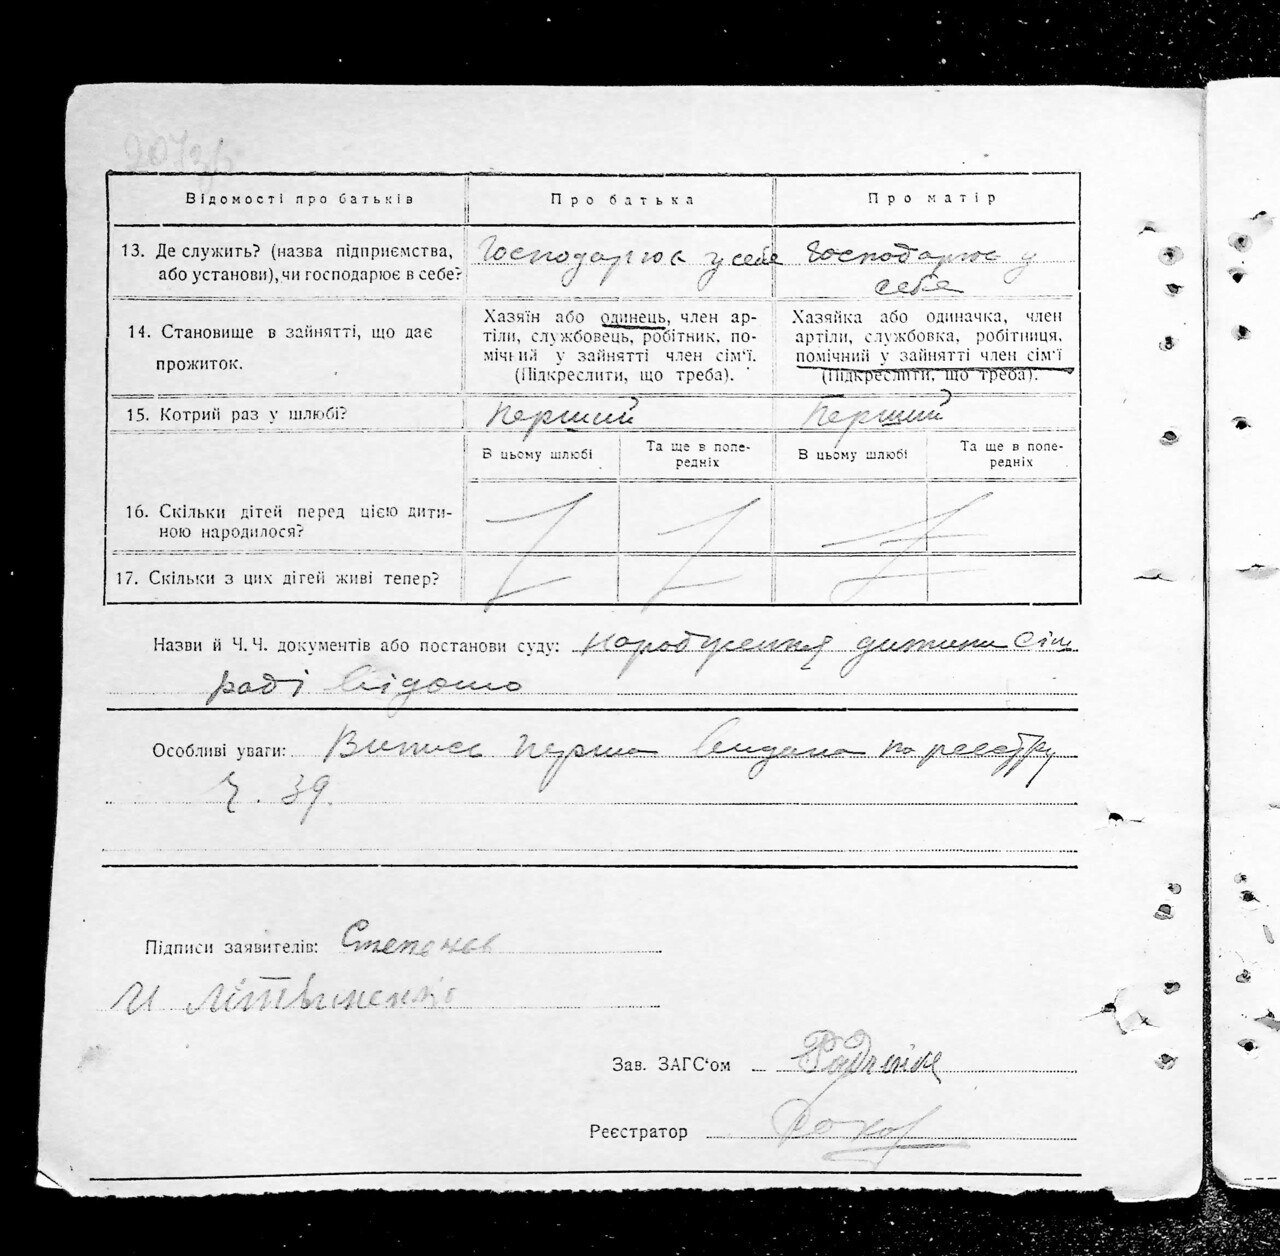 Відомості про батьків
Про батька
Про матір
13. Де служить? (назва підприємства,
або установи), чи господарює в себе?
Господарює у себе
Господарює у
себе
14. Становище в зайнятті, що дає
прожиток.
Хазяїн або одинець, член ар-
тіли, службовець, робітник, по-
мічний у зайнятті член сім'ї.
(Підкреслити, що треба).
Хазяйка або одиначка, член
артіли, службовка, робітниця,
помічний у зайнятті член сім'ї
(Підкреслити, що треба).
15. Котрий раз у шлюбі?
Перший
Перший
В цьому шлюбі
Та ще в попе-
редніх
В цьому шлюбі
Та ще в попе-
редніх
16. Скільки дітей перед цією дити-
ною народилося?
17. Скільки з цих дітей живі тепер?
Назви й Ч.Ч. документів або постанови суду: народження дитини сіль
раді відомо
Особливі уваги: Випись перша видана по реєстру
Ч. 39.
Підписи заявителів: Степанов
И Літвиненко
Зав. ЗАГС'ом
Реєстратор